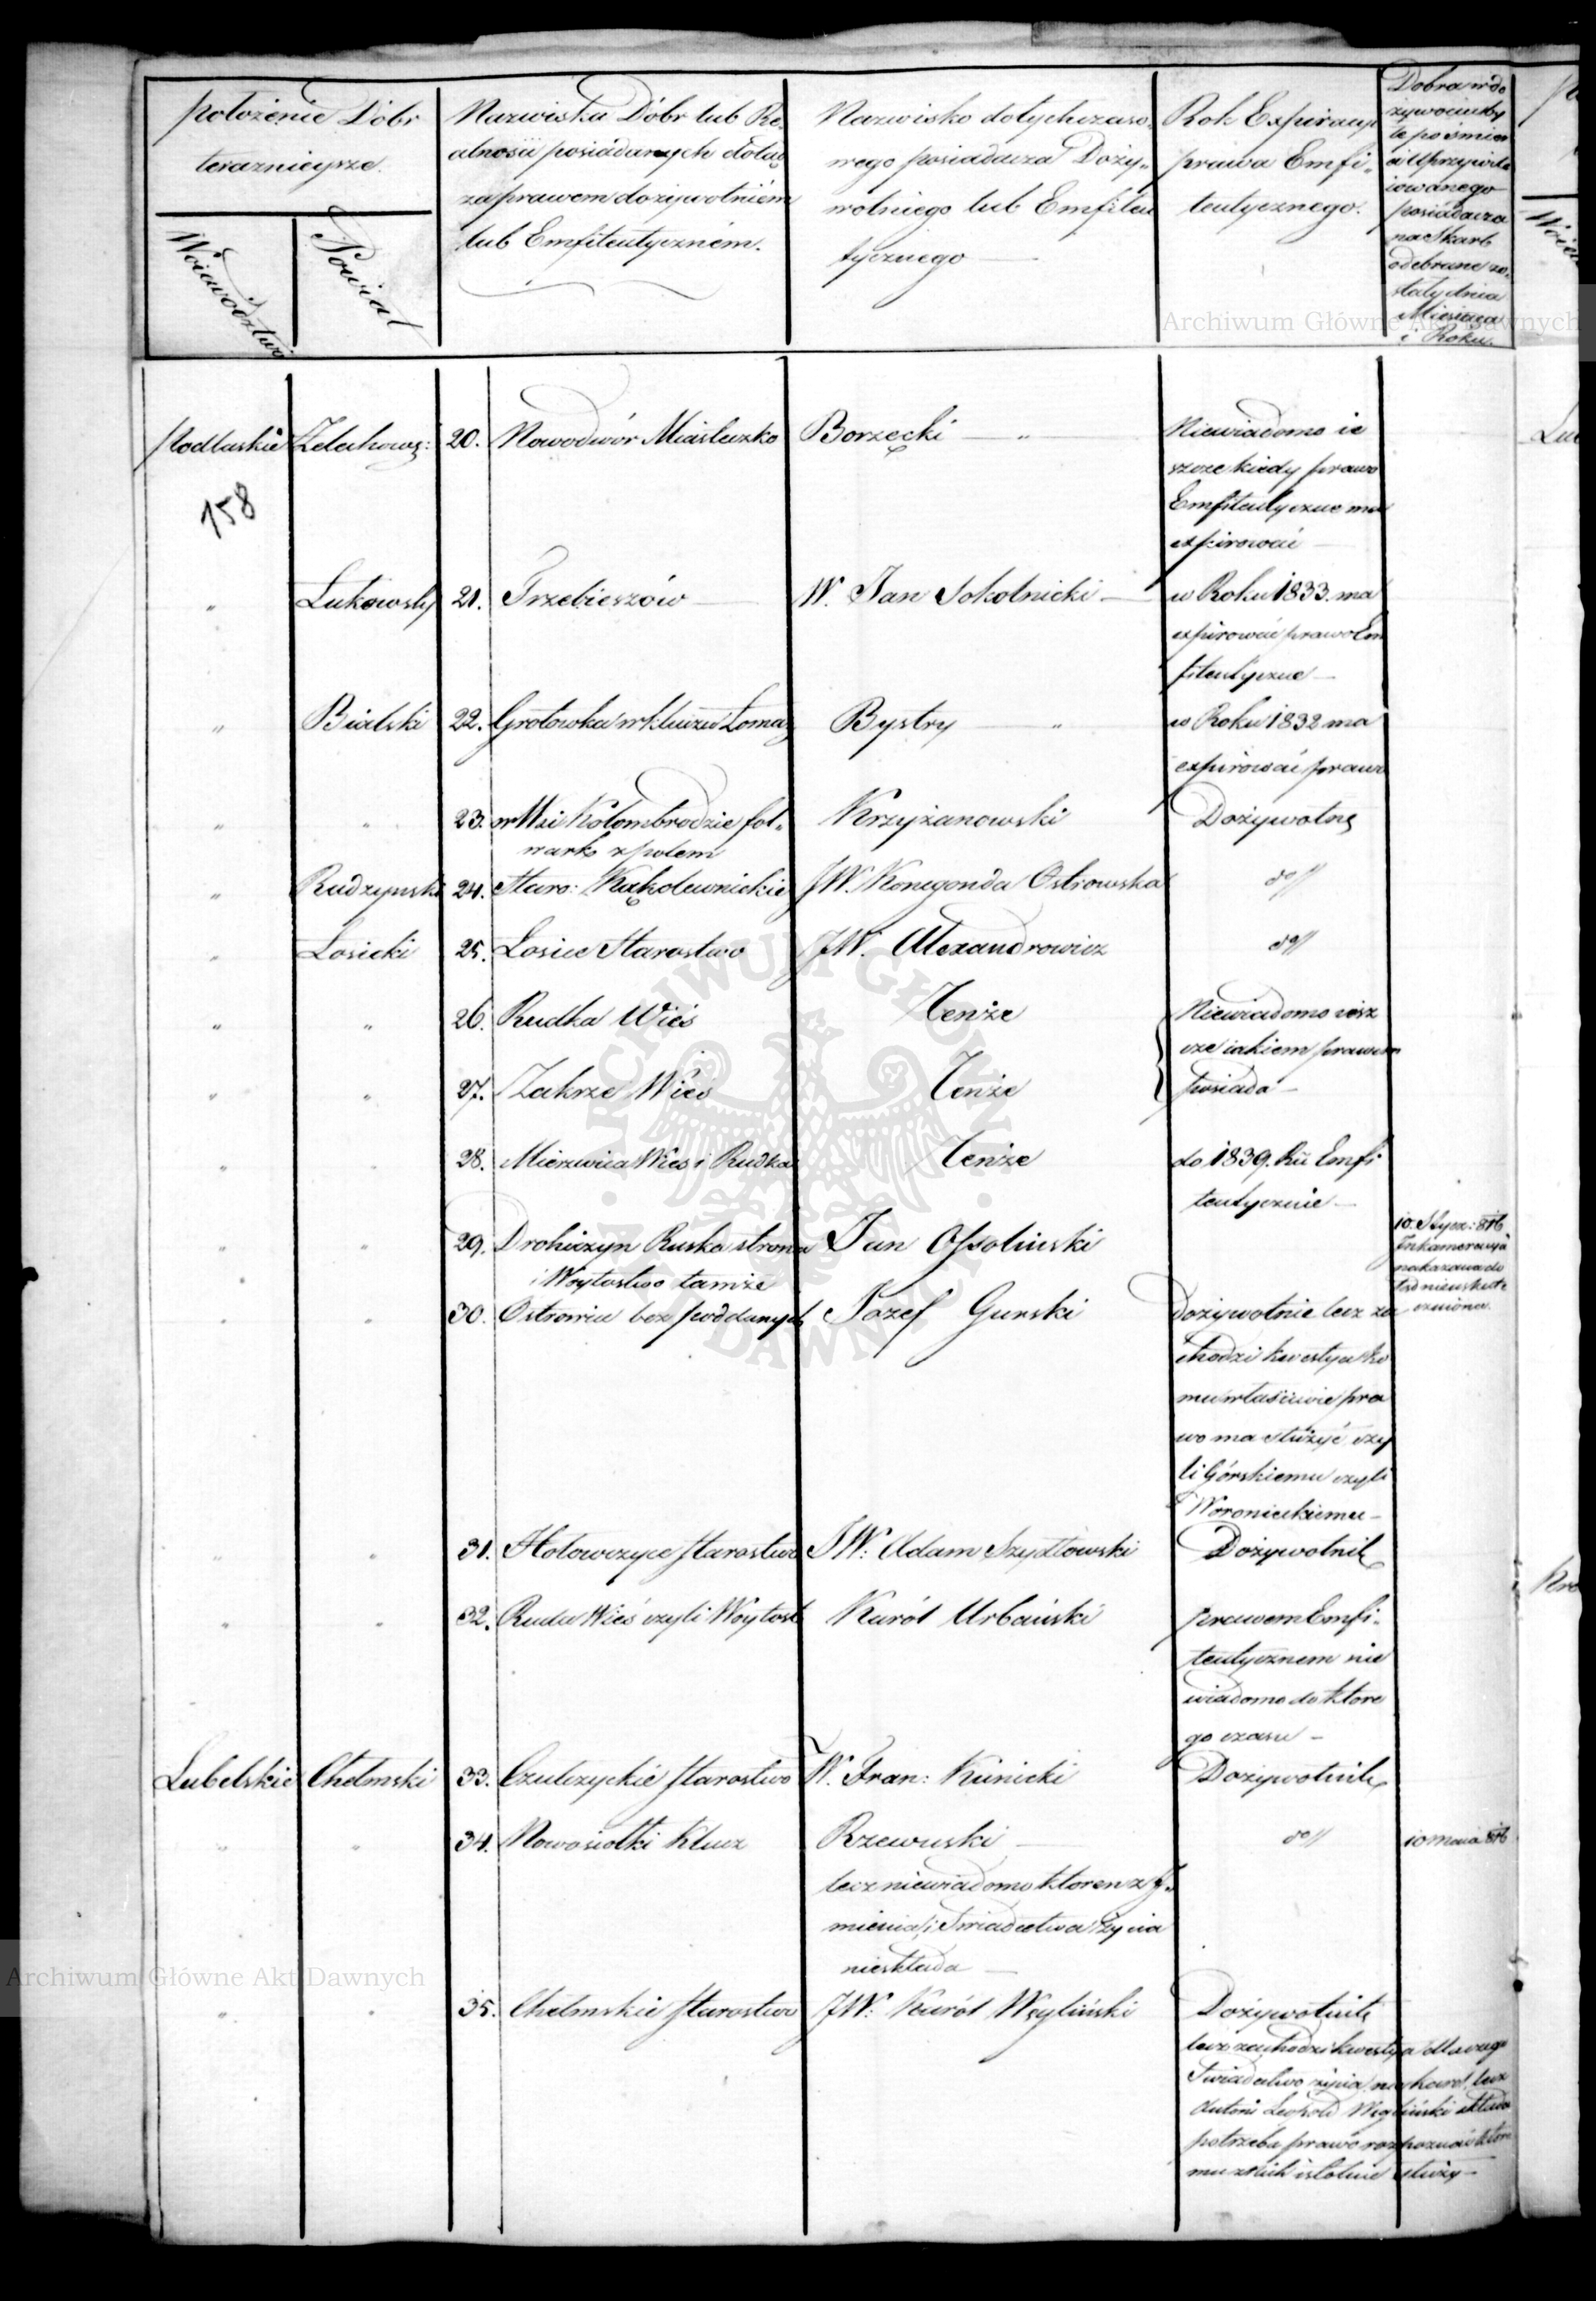 położenie Dóbr
teraznieysze.
Woiewództwo
Powiat
Nazwiska Dóbr lub Re-
alności posiadanych dotąd
za prawem dożywotniém
lub Emfiteutyczném.
Nazwisko dotychczaso-
wego posiadacza Doży-
wotniego lub Emfiteu
tycznego
Rok Expiracyi
prawa Emfi-
teutycznego.
Dobra w do
żywocia by
łe po śmier
ci Uprzywile
iowanego
posiadacza
na Skarb
odebrane zo-
stały dnia
Miesiąca
i Roku.
Podlaskie Zelechows: 20. Nowodwór Miasteczko Borzęcki — "
Niewiadomo ie
szcze kiedy prawo
Emfiteutyczne ma
expirować —
158
" Łukowski 21. Trzebieszów — W. Jan Sokolnicki — w Roku 1833. ma
expirować prawo Em
fiteutyczne —
" Bialski 22. Grotowka w kluczu Łomaz Bystry — " w Roku 1832 ma
expirować prawo
" " 23. w Wsi Kolombrodzie fol- Krzyżanowski Dożywotne
wark z polem
" Radzynski 24. Staro: Kąkolewnickie JW. Konegonda Ostrowska do//
" Łosicki 25. Łosice Starostwo JW. Alexandrowicz do//
" " 26. Rudka Wieś Tenże Niewiadomo iesz
cze iakiem prawem
" " 27. Zakrze Wieś Tenże posiada —
" " 28. Mierzwica Wieś i Rudka Tenże do 1839. Ru Emfi
teutycznie —
" " 29. Drohiczyn Ruska strona Jan Ossoliński
i Woytostwo tamże
10. Stycz: 816
Inkameracyia
nakazana do
tąd nieuskute
czniona.
" " 30. Ostromia bez poddanych Jozef Gurski Dożywotnie lecz za
chodzi kwestya ko
mu właściwie pra
wo ma służyć czy
li Górskiemu czyli
Woronieckiemu —
" " 31. Hołowczyce Starostwo JW: Adam Szydłowski Dożywotnie
" " 32. Ruda Wieś czyli Woytost Karól Urbański prawem Emfi-
teutycznem nie
wiadomo do które
go czasu —
Lubelskie Chełmski 33. Czulczyckie Starostwo W. Fran: Kunicki Dożywotnie
" " 34. Nowosiołki Klucz Rzewuski — do// 10 Maia 816
lecz niewiadomo ktoren z J-
mienia i Świadectwa Życia
nieskłada —
" " 35. Chełmskie Starostwo JW: Karól Węgliński Dożywotnie
lecz zachodzi kwestya dla czego
Swiadectwo życia nie Karol, lecz
Antoni Leopold Węgliński składa
potrzeba prawo rozpoznać które
mu z nich istotnie służy —
Archiwum Główne Akt Dawnych
Archiwum Główne Akt Dawnych
ARCHIWUM GŁÓWNE AKT DAWNYCH